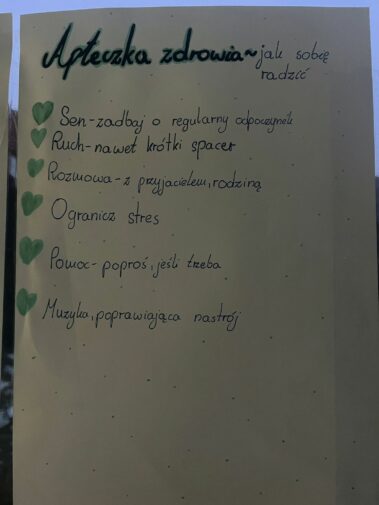 Apteczka zdrowia~jak sobie
radzić
Sen-zadbaj o regularny odpoczynek
Ruch-nawet krótki spacer
Rozmowa-z przyjacielem, rodziną
Ogranicz stres
Pomoc-poproś, jeśli trzeba
Muzyka, poprawiająca nastrój